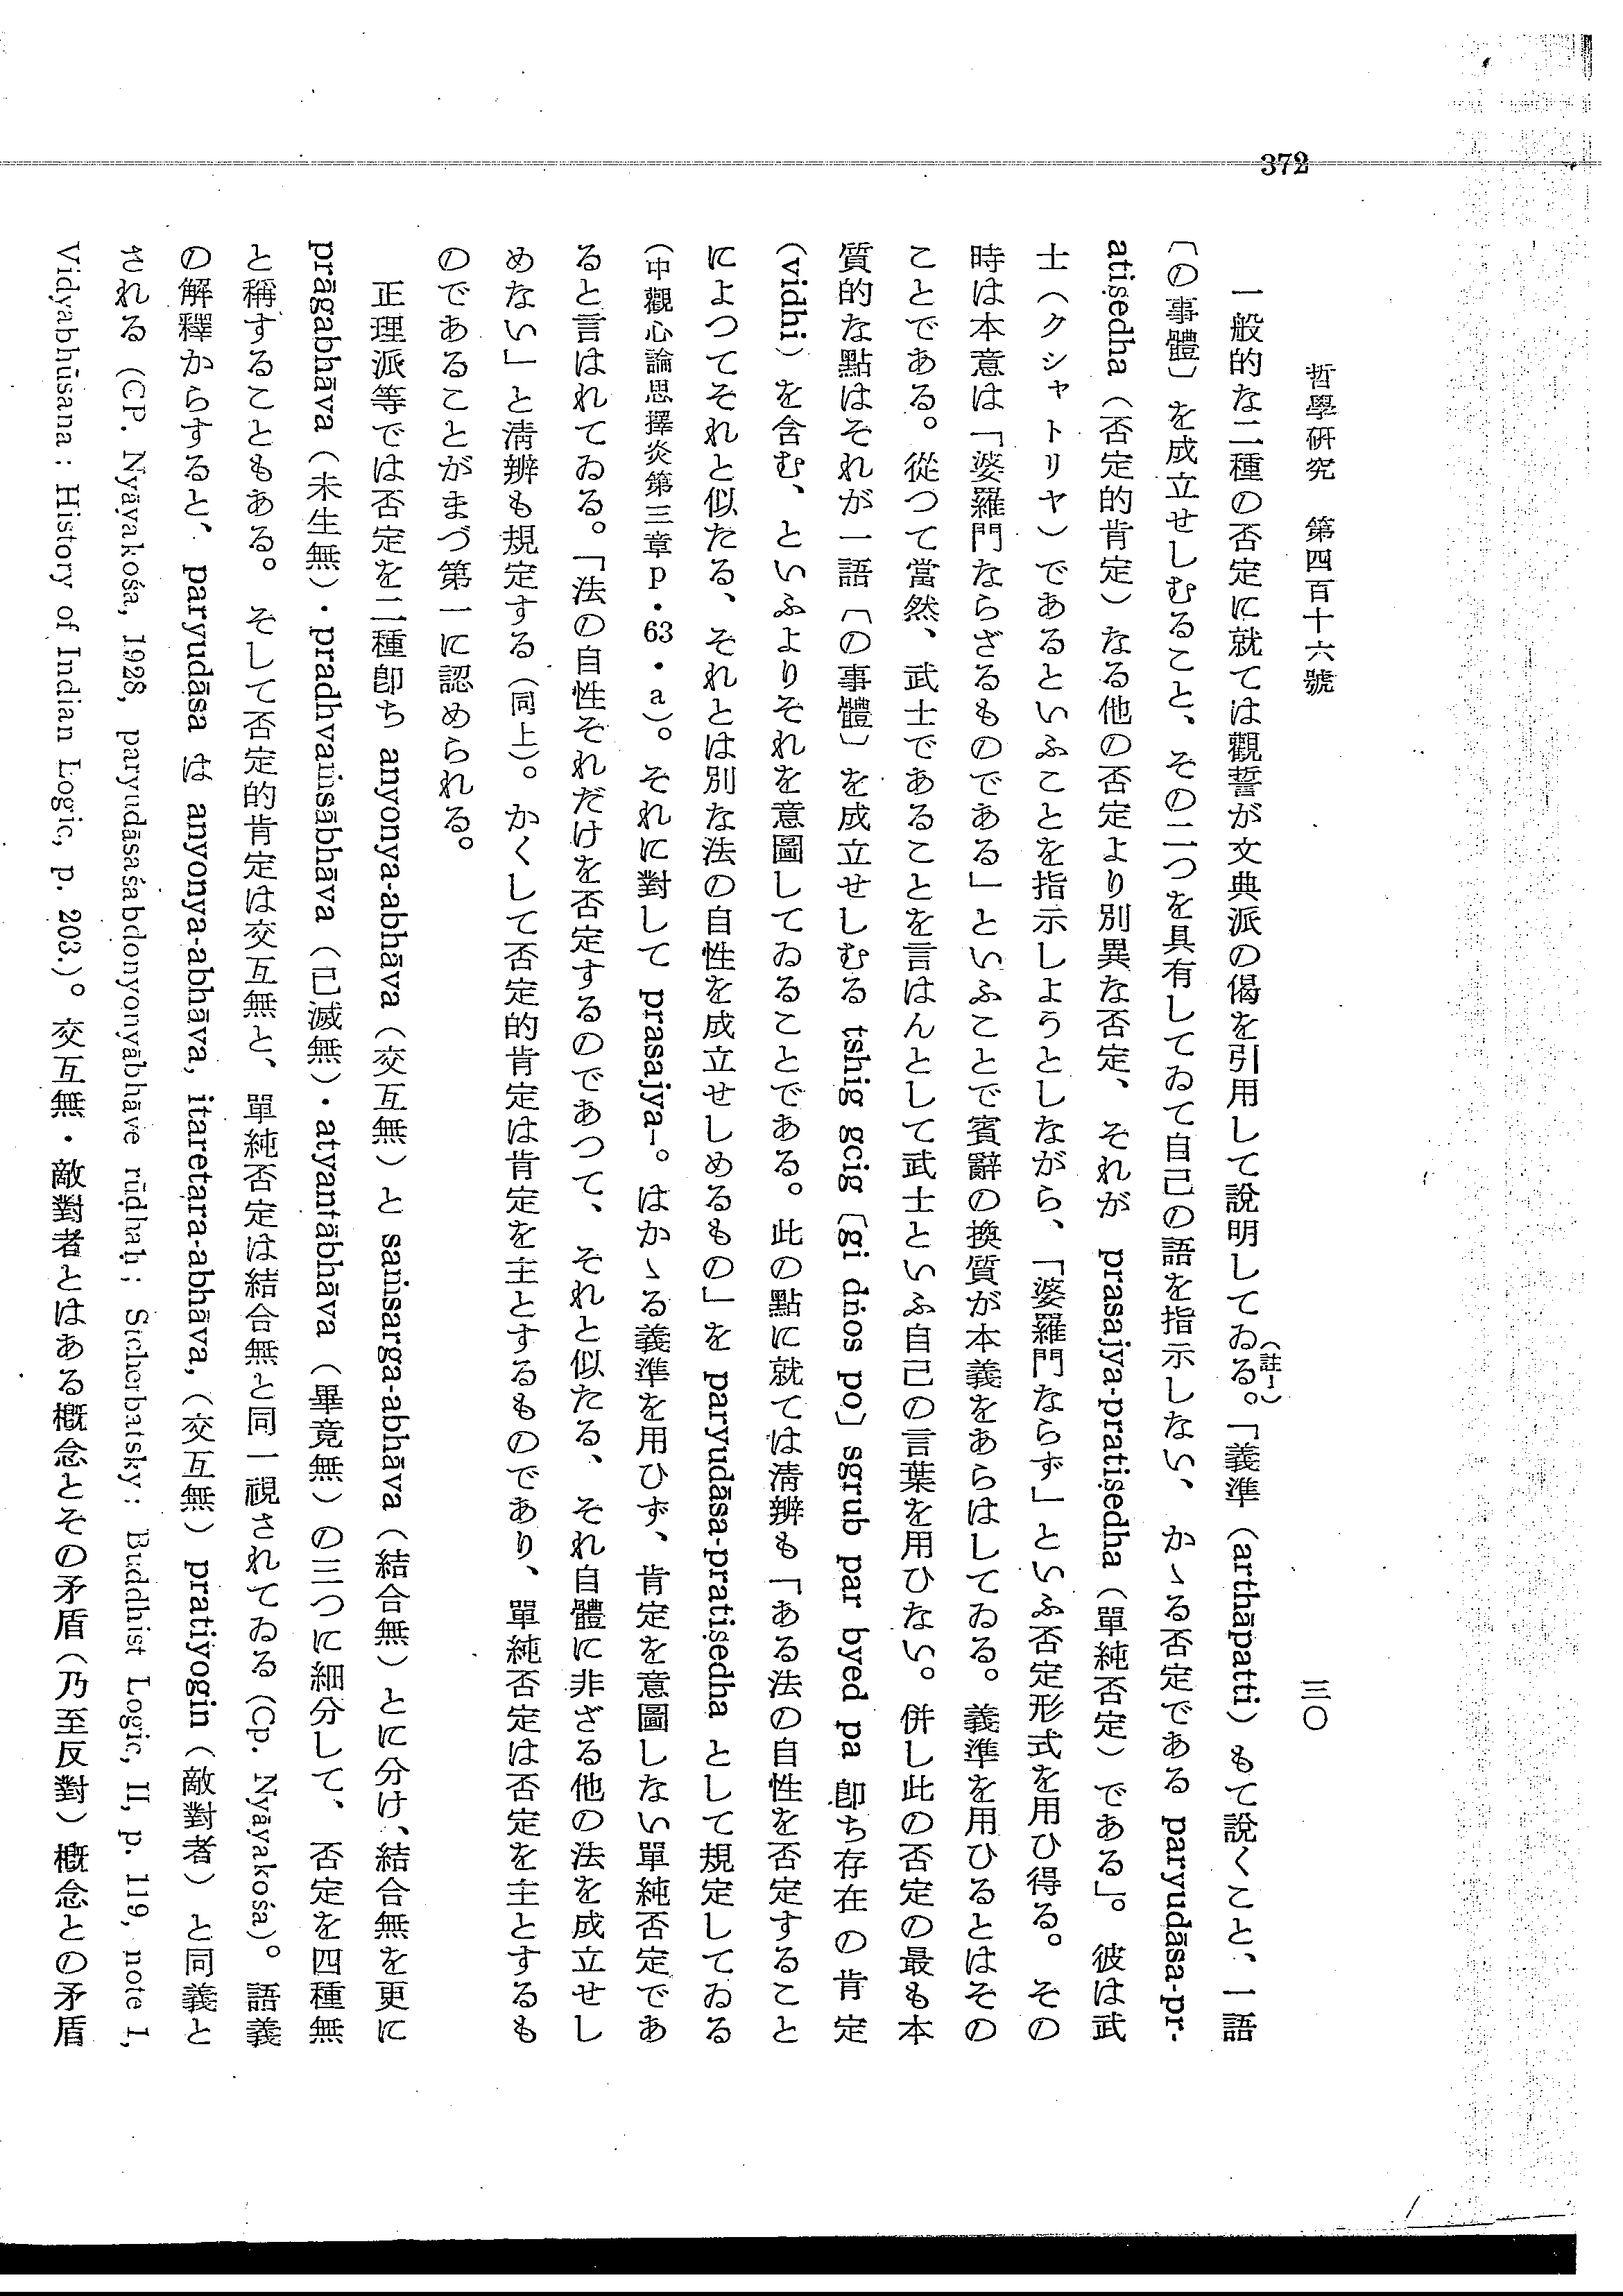 372
哲學硏究　第四百十六號
三〇
一般的な二種の否定に就ては觀誓が文典派の偈を引用して說明してゐる。(註1)「義準（arthāpatti）もて說くこと、一語
〔の事體〕を成立せしむること、その二つを具有してゐて自己の語を指示しない、かゝる否定である paryudāsa-pr-
atiṣedha（否定的肯定）なる他の否定より別異な否定、それが prasajya-pratiṣedha（單純否定）である」。彼は武
士（クシャトリヤ）であるといふことを指示しようとしながら、「婆羅門ならず」といふ否定形式を用ひ得る。その
時は本意は「婆羅門ならざるものである」といふことで賓辭の換質が本義をあらはしてゐる。義準を用ひるとはその
ことである。從つて當然、武士であることを言はんとして武士といふ自己の言葉を用ひない。併し此の否定の最も本
質的な點はそれが一語〔の事體〕を成立せしむる tshig gcig〔gi dṅos po〕sgrub par byed pa 卽ち存在の肯定
（vidhi）を含む、といふよりそれを意圖してゐることである。此の點に就ては淸辨も「ある法の自性を否定すること
によつてそれと似たる、それとは別な法の自性を成立せしめるもの」を paryudāsa-pratiṣedha として規定してゐる
（中觀心論思擇炎第三章p・63・a）。それに對して prasajya-。はかゝる義準を用ひず、肯定を意圖しない單純否定であ
ると言はれてゐる。「法の自性それだけを否定するのであつて、それと似たる、それ自體に非ざる他の法を成立せし
めない」と淸辨も規定する（同上）。かくして否定的肯定は肯定を主とするものであり、單純否定は否定を主とするも
のであることがまづ第一に認められる。
正理派等では否定を二種卽ち anyonya-abhāva（交互無）と saṁsarga-abhāva（結合無）とに分け、結合無を更に
prāgabhāva（未生無）・pradhvaṁsābhāva（已滅無）・atyantābhāva（畢竟無）の三つに細分して、否定を四種無
と稱することもある。そして否定的肯定は交互無と、單純否定は結合無と同一視されてゐる（Cp. Nyāyakośa）。語義
の解釋からすると、paryudāsa は anyonya-abhāva, itaretara-abhāva,（交互無）pratiyogin（敵對者）と同義と
される（CP. Nyāyakośa, 1928, paryudāsaśabdonyonyābhāve rūḍhaḥ; Stcherbatsky: Buddhist Logic, II, p. 119, note 1,
Vidyabhūsana: History of Indian Logic, p. 203.）。交互無・敵對者とはある槪念とその矛盾（乃至反對）槪念との矛盾